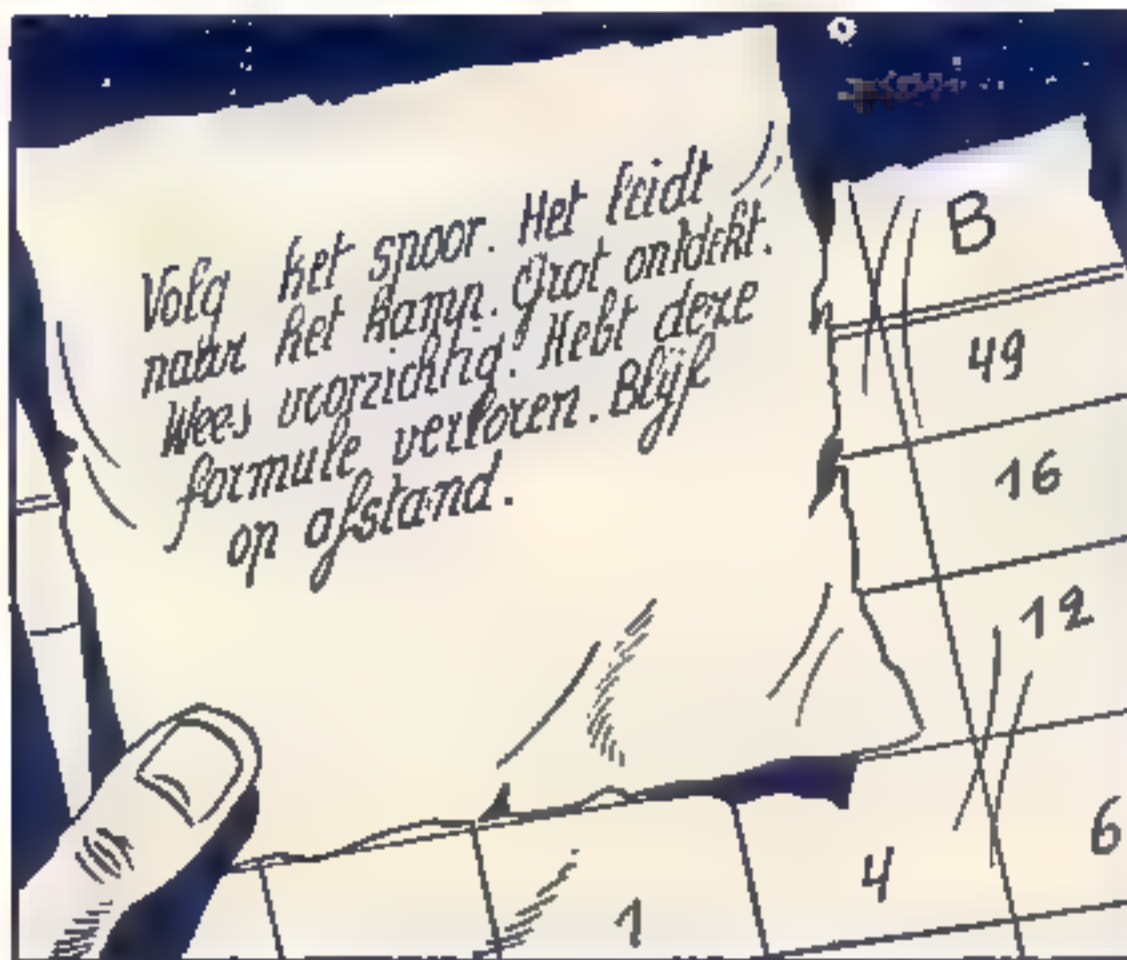 Volg het spoor. Het leidt
naar het kamp. Grot ontdekt.
Wees voorzichtig! Hebt deze
formule verloren. Blijf
op afstand.
B
49
16
12
6
4
1